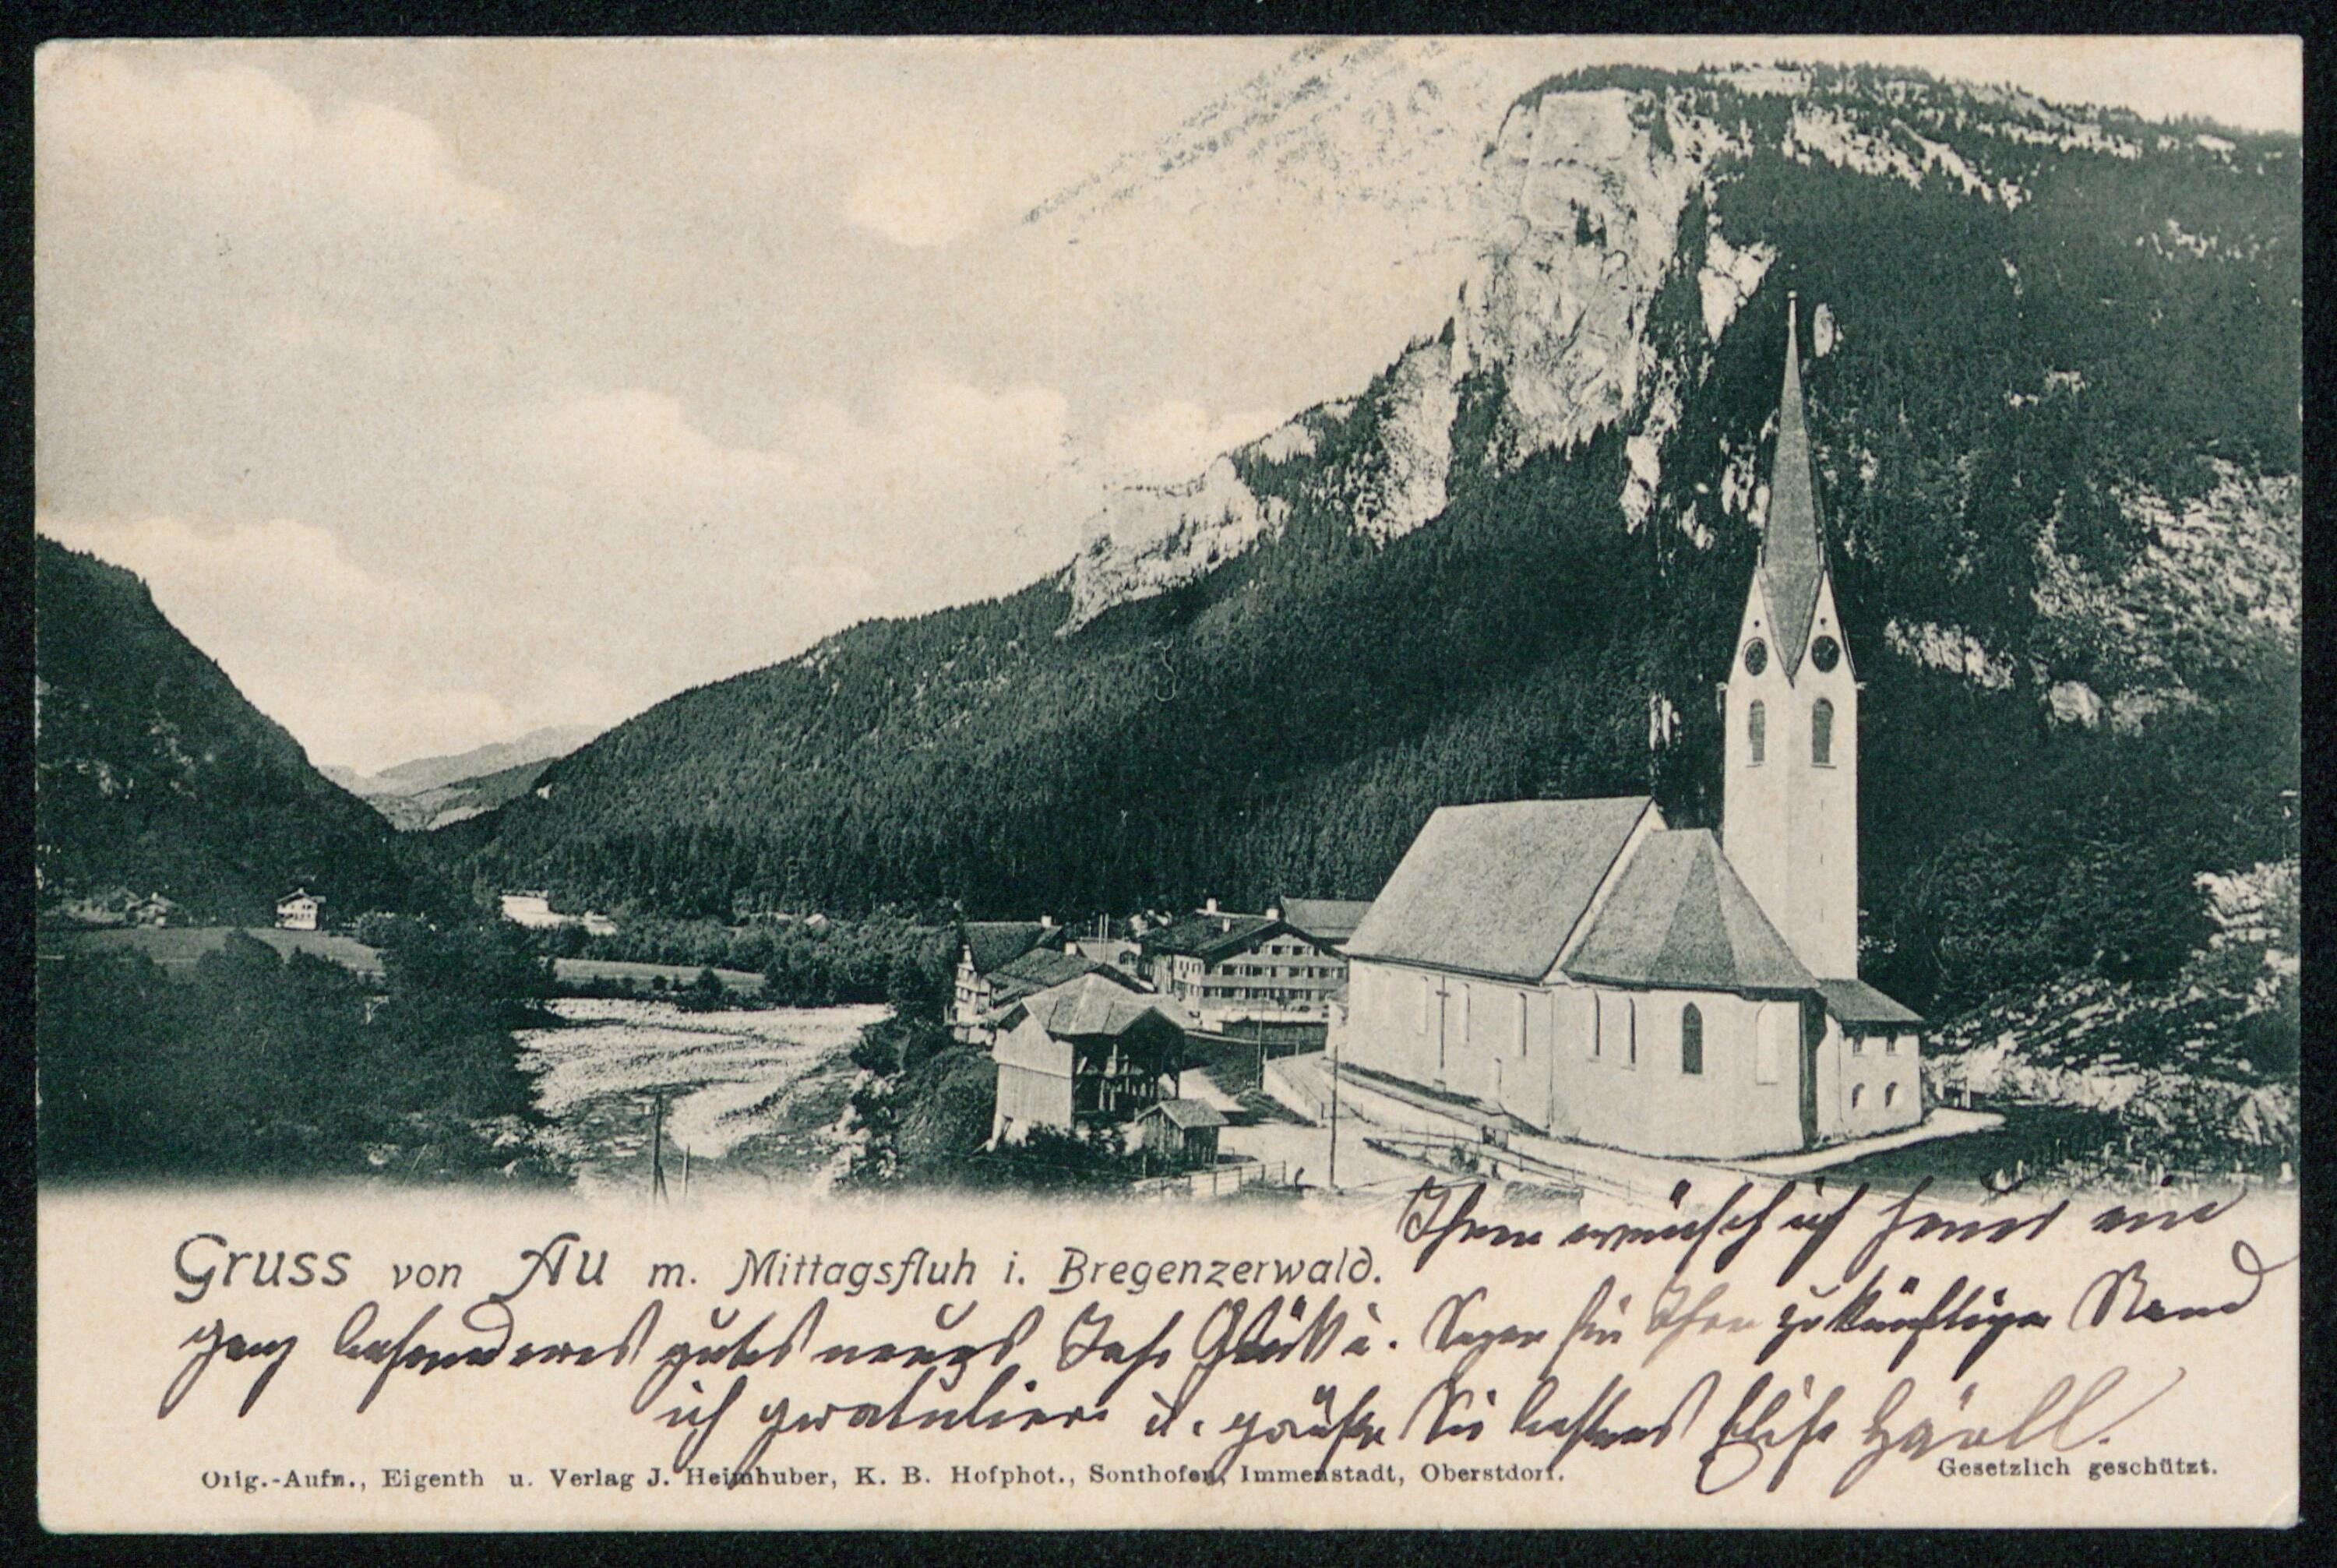 Gruss von Au m. Mittagsfluh i. Bregenzerwald.
Ihnen wünsch ich heuer ein
ganz besonderes gutes neues Jahr Glük u. Segen
ich gratuliere u. grüße Sie bestens Elise
Orig.-Aufn., Eigenth u. Verlag J. Heimhuber, K. B. Hofphot., Sonthofen, Immenstadt, Oberstdorf.
Gesetzlich geschützt.